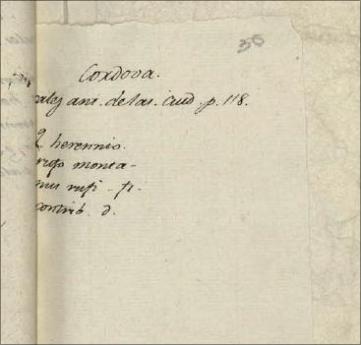 36
Cordova.
rales ant. de las. ciud. p. 118.
Q herennio.
rigo monta-
nus rufi - fi.
contrib. d.